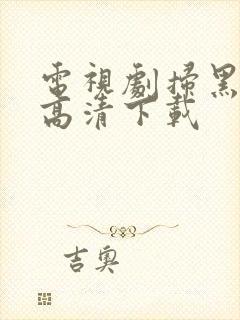 電視劇掃黑
高清下載
吉奧